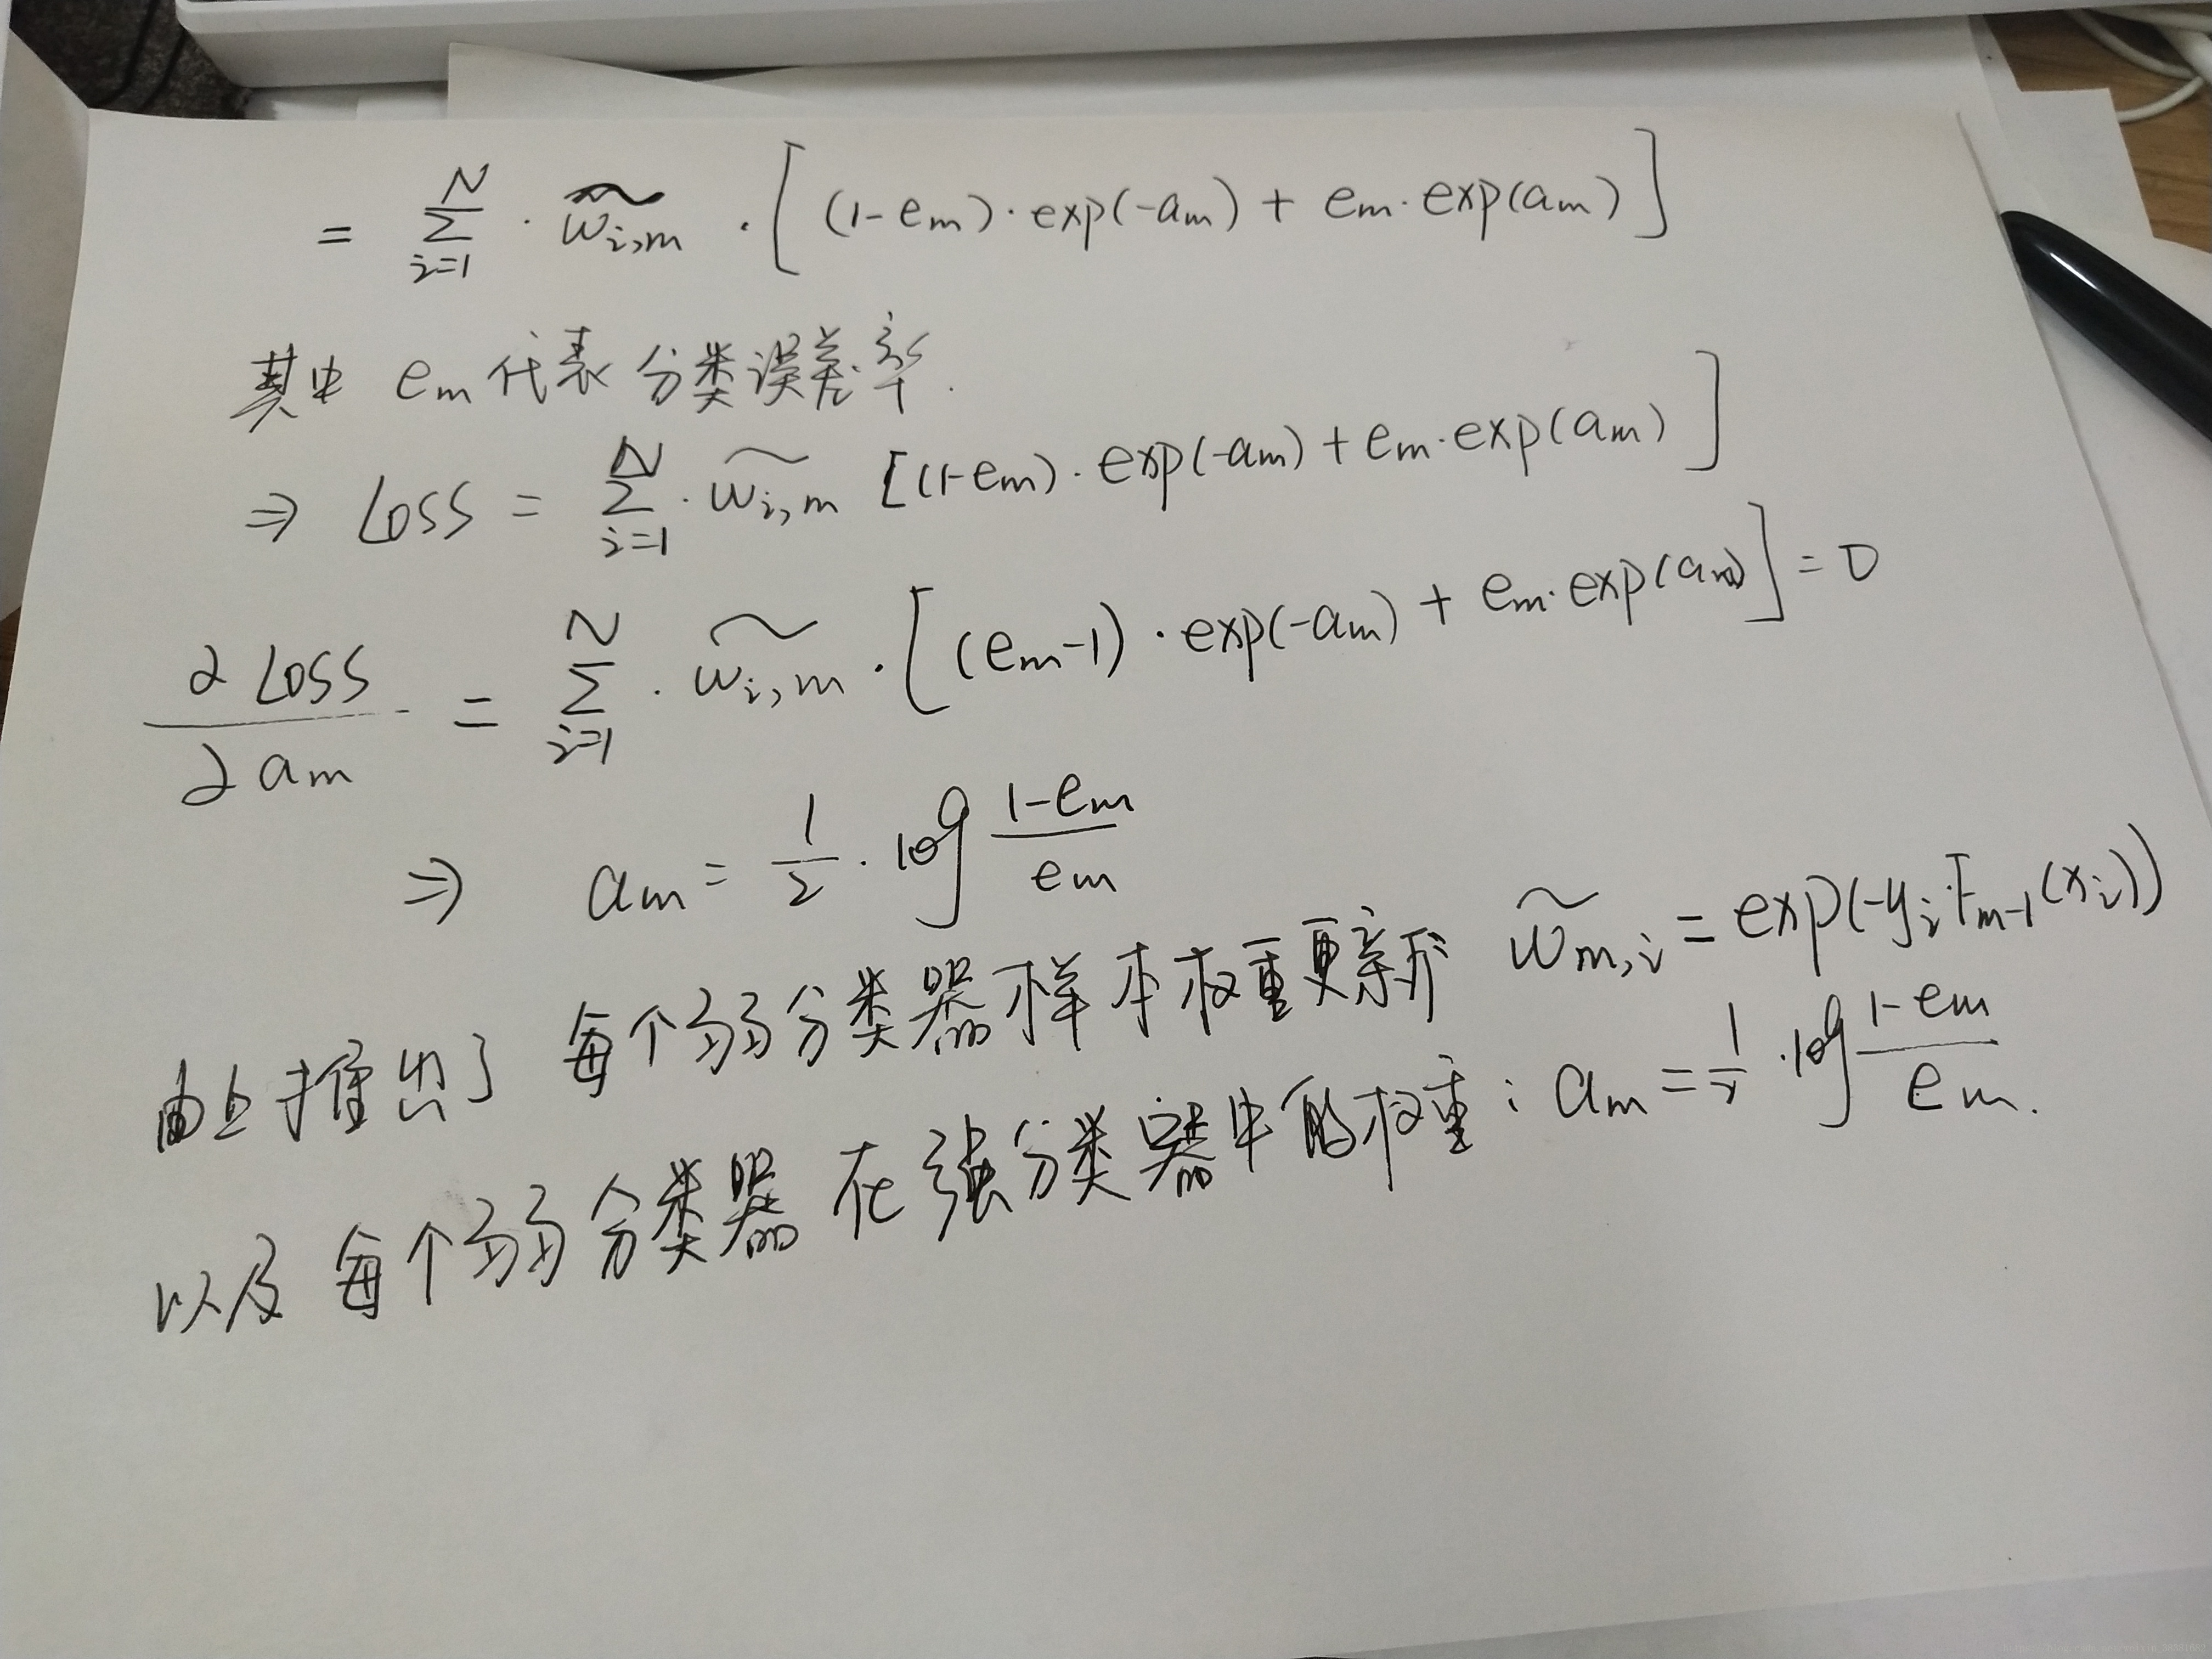 = \sum_{i=1}^{N} · \widetilde{w}_{i,m} · [(1-e_m)·exp(-a_m) + e_m·exp(a_m)]
其中 e_m 代表分类误差率.
⇒ Loss = \sum_{i=1}^{N} · \widetilde{w}_{i,m} [(1-e_m)·exp(-a_m) + e_m·exp(a_m)]
\frac{∂ Loss}{∂ a_m} = \sum_{i=1}^{N} · \widetilde{w}_{i,m} · [(e_m-1)·exp(-a_m) + e_m·exp(a_m)] = 0
⇒ a_m = \frac{1}{2} · log \frac{1-e_m}{e_m}
由上推出了 每个弱分类器样本权重更新 \widetilde{w}_{m,i} = exp(-y_i·F_{m-1}(x_i))
以及 每个弱分类器 在强分类器中的权重: a_m = \frac{1}{2} · log \frac{1-e_m}{e_m}.